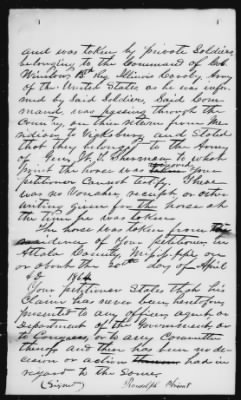 and was taken by private Soldiers
belonging to the Command of Col
Winslow Ills Cavalry Army
of the United States as he was infor
med by Said Soldiers, Said Com
mand, was passing through the
Country, on their return from Me
ridian to Vicksburg and Stated
that they belonged to the Army
of Genr W. T. Sherman to what
point the horse was removed your
petitioner cannot testify. There
was no Voucher, receipt or other
writing given for the horse at
the time he was taken
The horse was taken from the
residence of your petitioner, in
Attala County, Mississippi on
or about the 20th day of April
AD 1864
Your petitioner States that his
claim has never been heretofore
presented to any officer, agent or
Department of the Government, or
to Congress, or to any Committee
thereof and there has been no de
cision or action had in
regard to the Same
(Signed) Randolph